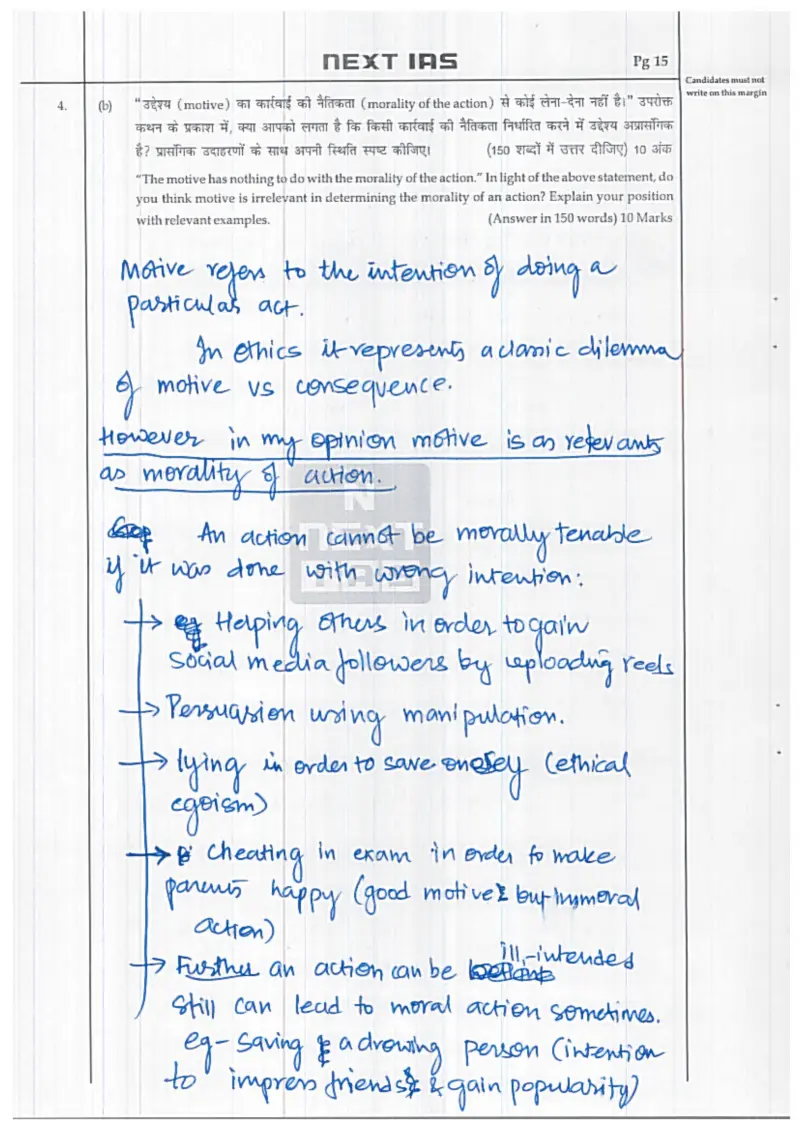 NEXT IAS
Pg 15
Candidates must not
write on this margin
4. (b) "उद्देश्य (motive) का कार्रवाई की नैतिकता (morality of the action) से कोई लेना-देना नहीं है।" उपरोक्त
कथन के प्रकाश में, क्या आपको लगता है कि किसी कार्रवाई की नैतिकता निर्धारित करने में उद्देश्य अप्रासंगिक
है? प्रासंगिक उदाहरणों के साथ अपनी स्थिति स्पष्ट कीजिए। (150 शब्दों में उत्तर दीजिए) 10 अंक
"The motive has nothing to do with the morality of the action." In light of the above statement, do
you think motive is irrelevant in determining the morality of an action? Explain your position
with relevant examples. (Answer in 150 words) 10 Marks
Motive refers to the intention of doing a
particular act.
In ethics it represents a classic dilemma
of motive vs consequence.
However in my opinion motive is as relevants
as morality of action.
N
NEXT
IAS
An action cannot be morally tenable
if it was done with wrong intention:
→ eg Helping others in order to gain
social media followers by uploading reels
→ Persuasion using manipulation.
→ lying in order to save (ethical
egoism)
→ Cheating in exam in order to make
parents happy (good motive but immoral
action)
→ Further an action can be ill-intended
still can lead to moral action sometimes.
eg- Saving a drowing person (intention
to impress friends & gain popularity)